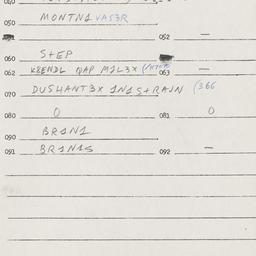 050 MONTN1 VAS3R
052 —
060 STEP
062 K8ENDL QAP M1L3X 063 —
070 DUSHANT3X 1N1STRAJN (366
080 0 081 0
090 BR1N1
091 BR1N1S 092 —